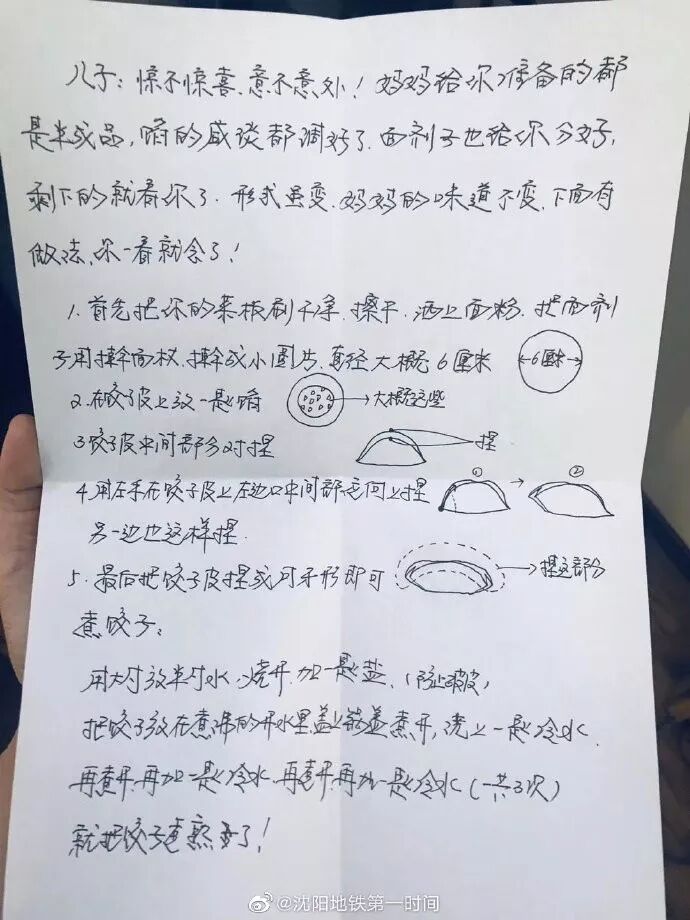 儿子：惊不惊喜、意不意外！妈妈给你准备的都
是半成品，馅的咸谈都调好了、面剂子也给你分好，
剩下的就看你了．形式虽变、妈妈的味道不变、下面有
做法、你一看就会了！
1、首先把你的菜板刷干净、擦干、洒上面粉、把面剂
子用擀面杖、擀成小圆片、直径大概6厘米
6厘米
2、在饺子皮上放一匙馅
大概这些
3、饺子皮中间部分对捏
捏
4、用左手在饺子皮上左边口中间部位向上捏
① → ②
另一边也这样捏．
5、最后把饺子皮捏成月牙形即可
捏这部分
煮饺子：
用大锅放半锅水、烧开、加一匙盐、（防止破皮）
把饺子放在煮沸的开水里盖上锅盖煮开，浇上一匙冷水．
再煮开、再加一匙冷水、再煮开再加一匙冷水（一共3次）
就把饺子煮熟了！
@沈阳地铁第一时间